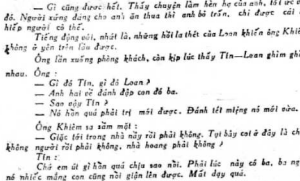 — Gì cũng được hết. Thấy chuyện làm hèn hạ của anh, tôi ức
đó. Người xứng đáng cho anh ăn thua thì anh bỏ trốn, chỉ được cái
hiếp người cô thế.
Tiếng động cói, nhất là, những hồi la thét của Loan khiến ông Khi
không ở yên trên lầu được.
Ông lần xuống phòng khách, còn kịp lúc thấy Tín—Loan ghìm ghì
nhau. Ông :
— Gì đó Tín, gì đó Loan ?
— Anh hai về đánh đập con đó ba.
— Sao vậy Tín ?
— Nó hỗn quá phải trị mới được. Đánh tét miệng nó mới vừa.
Ông Khiêm sa sầm mặt :
— Giặc tới trong nhà nầy rồi phải không. Tụi bây coi ở đây là ch
không người rồi phải không, nhà hoang phải không ?
Tín :
— Chớ em út gì hỗn quá chịu sao nổi. Phải lúc nầy có ba, ba ng
nó nhiếc mắng con cũng nổi giận lên được. Mất dạy quá.